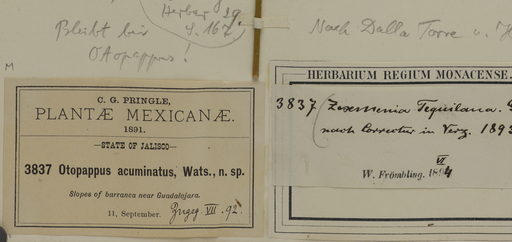 Herbar 39.
Bleibt bei S. 167.
Otopappus!
Nach Dalla Torre u.
M
C. G. PRINGLE,
PLANTÆ MEXICANÆ.
1891.
—STATE OF JALISCO—
3837 Otopappus acuminatus, Wats., n. sp.
Slopes of barranca near Guadalajara.
11, September. Zugeg. VII. 92.
HERBARIUM REGIUM MONACENSE.
3837 Zexmenia Tequilana.
nach Correctur in Verz. 1893
W. Frömbling. VI 1894